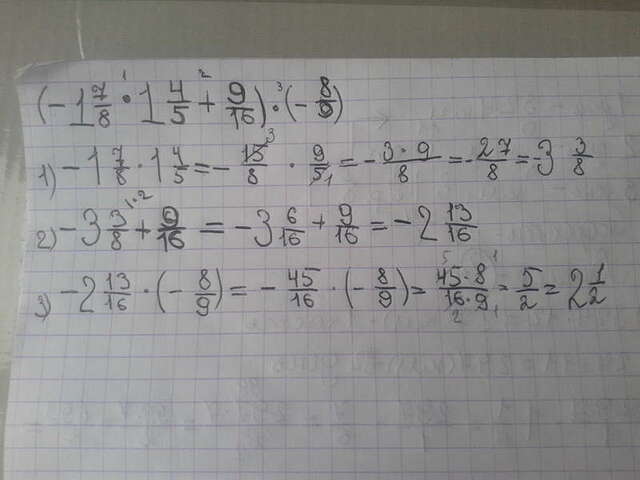 (-1 7/8 ·¹ 1 4/5 +² 9/16) ·³ (- 8/9)
1) -1 7/8 · 1 4/5 = - 15³/8 · 9/5₁ = - 3·9/8 = - 27/8 = -3 3/8
2) -3 3/8 ¹·² + 9/16 = -3 6/16 + 9/16 = -2 13/16
3) -2 13/16 · (- 8/9) = - 45/16 · (- 8/9) = 45⁵·8¹/16₂·9₁ = 5/2 = 2 1/2